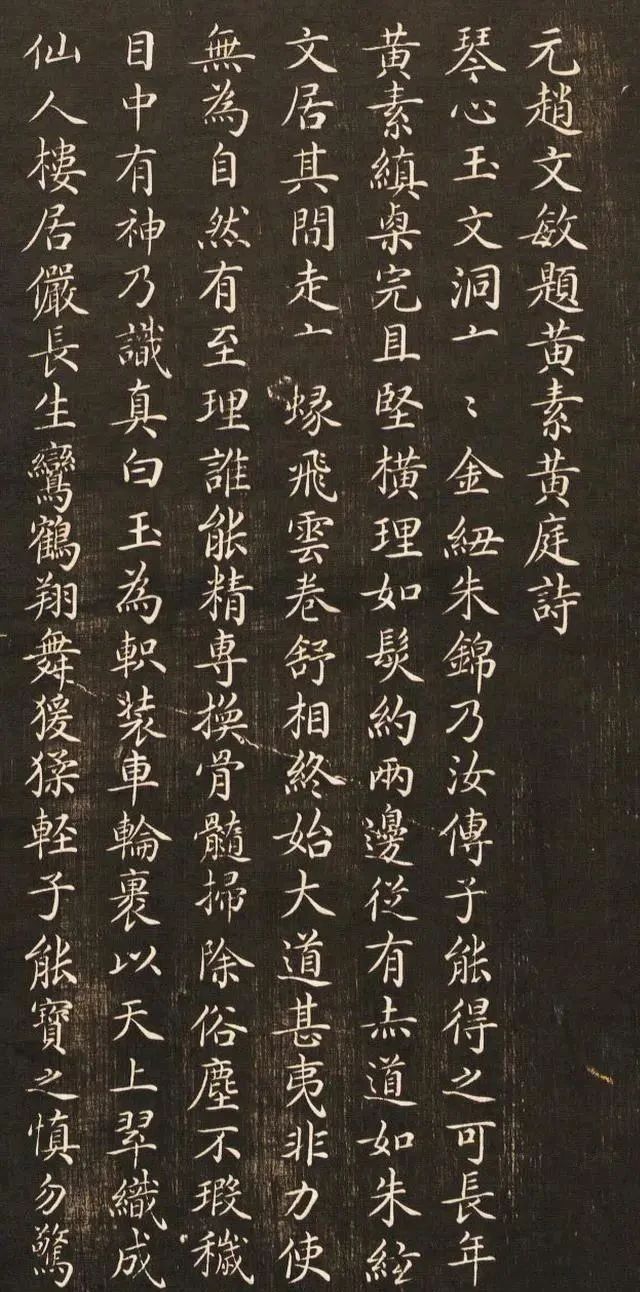 元趙文敏題黃素黃庭詩
琴心玉文洞亠〻金紐朱錦乃汝傳子能得之可長年
黃素縝栗完且堅橫理如髮約兩邊從有赤道如朱絃
文居其間走亠蝝飛雲卷舒相終始大道甚夷非力使
無為自然有至理誰能精專換骨髓掃除俗塵不瑕穢
目中有神乃識真白玉為軹裝車輪裹以天上翠織成
仙人樓居儼長生鸞鶴翔舞猨猱輕子能寶之慎勿驚